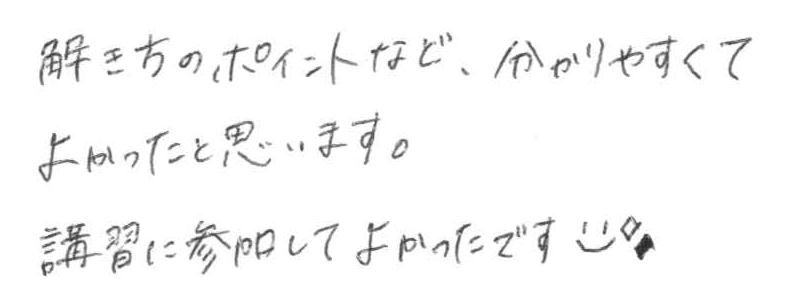 解き方のポイントなど、分かりやすくて
よかったと思います。
講習に参加してよかったです